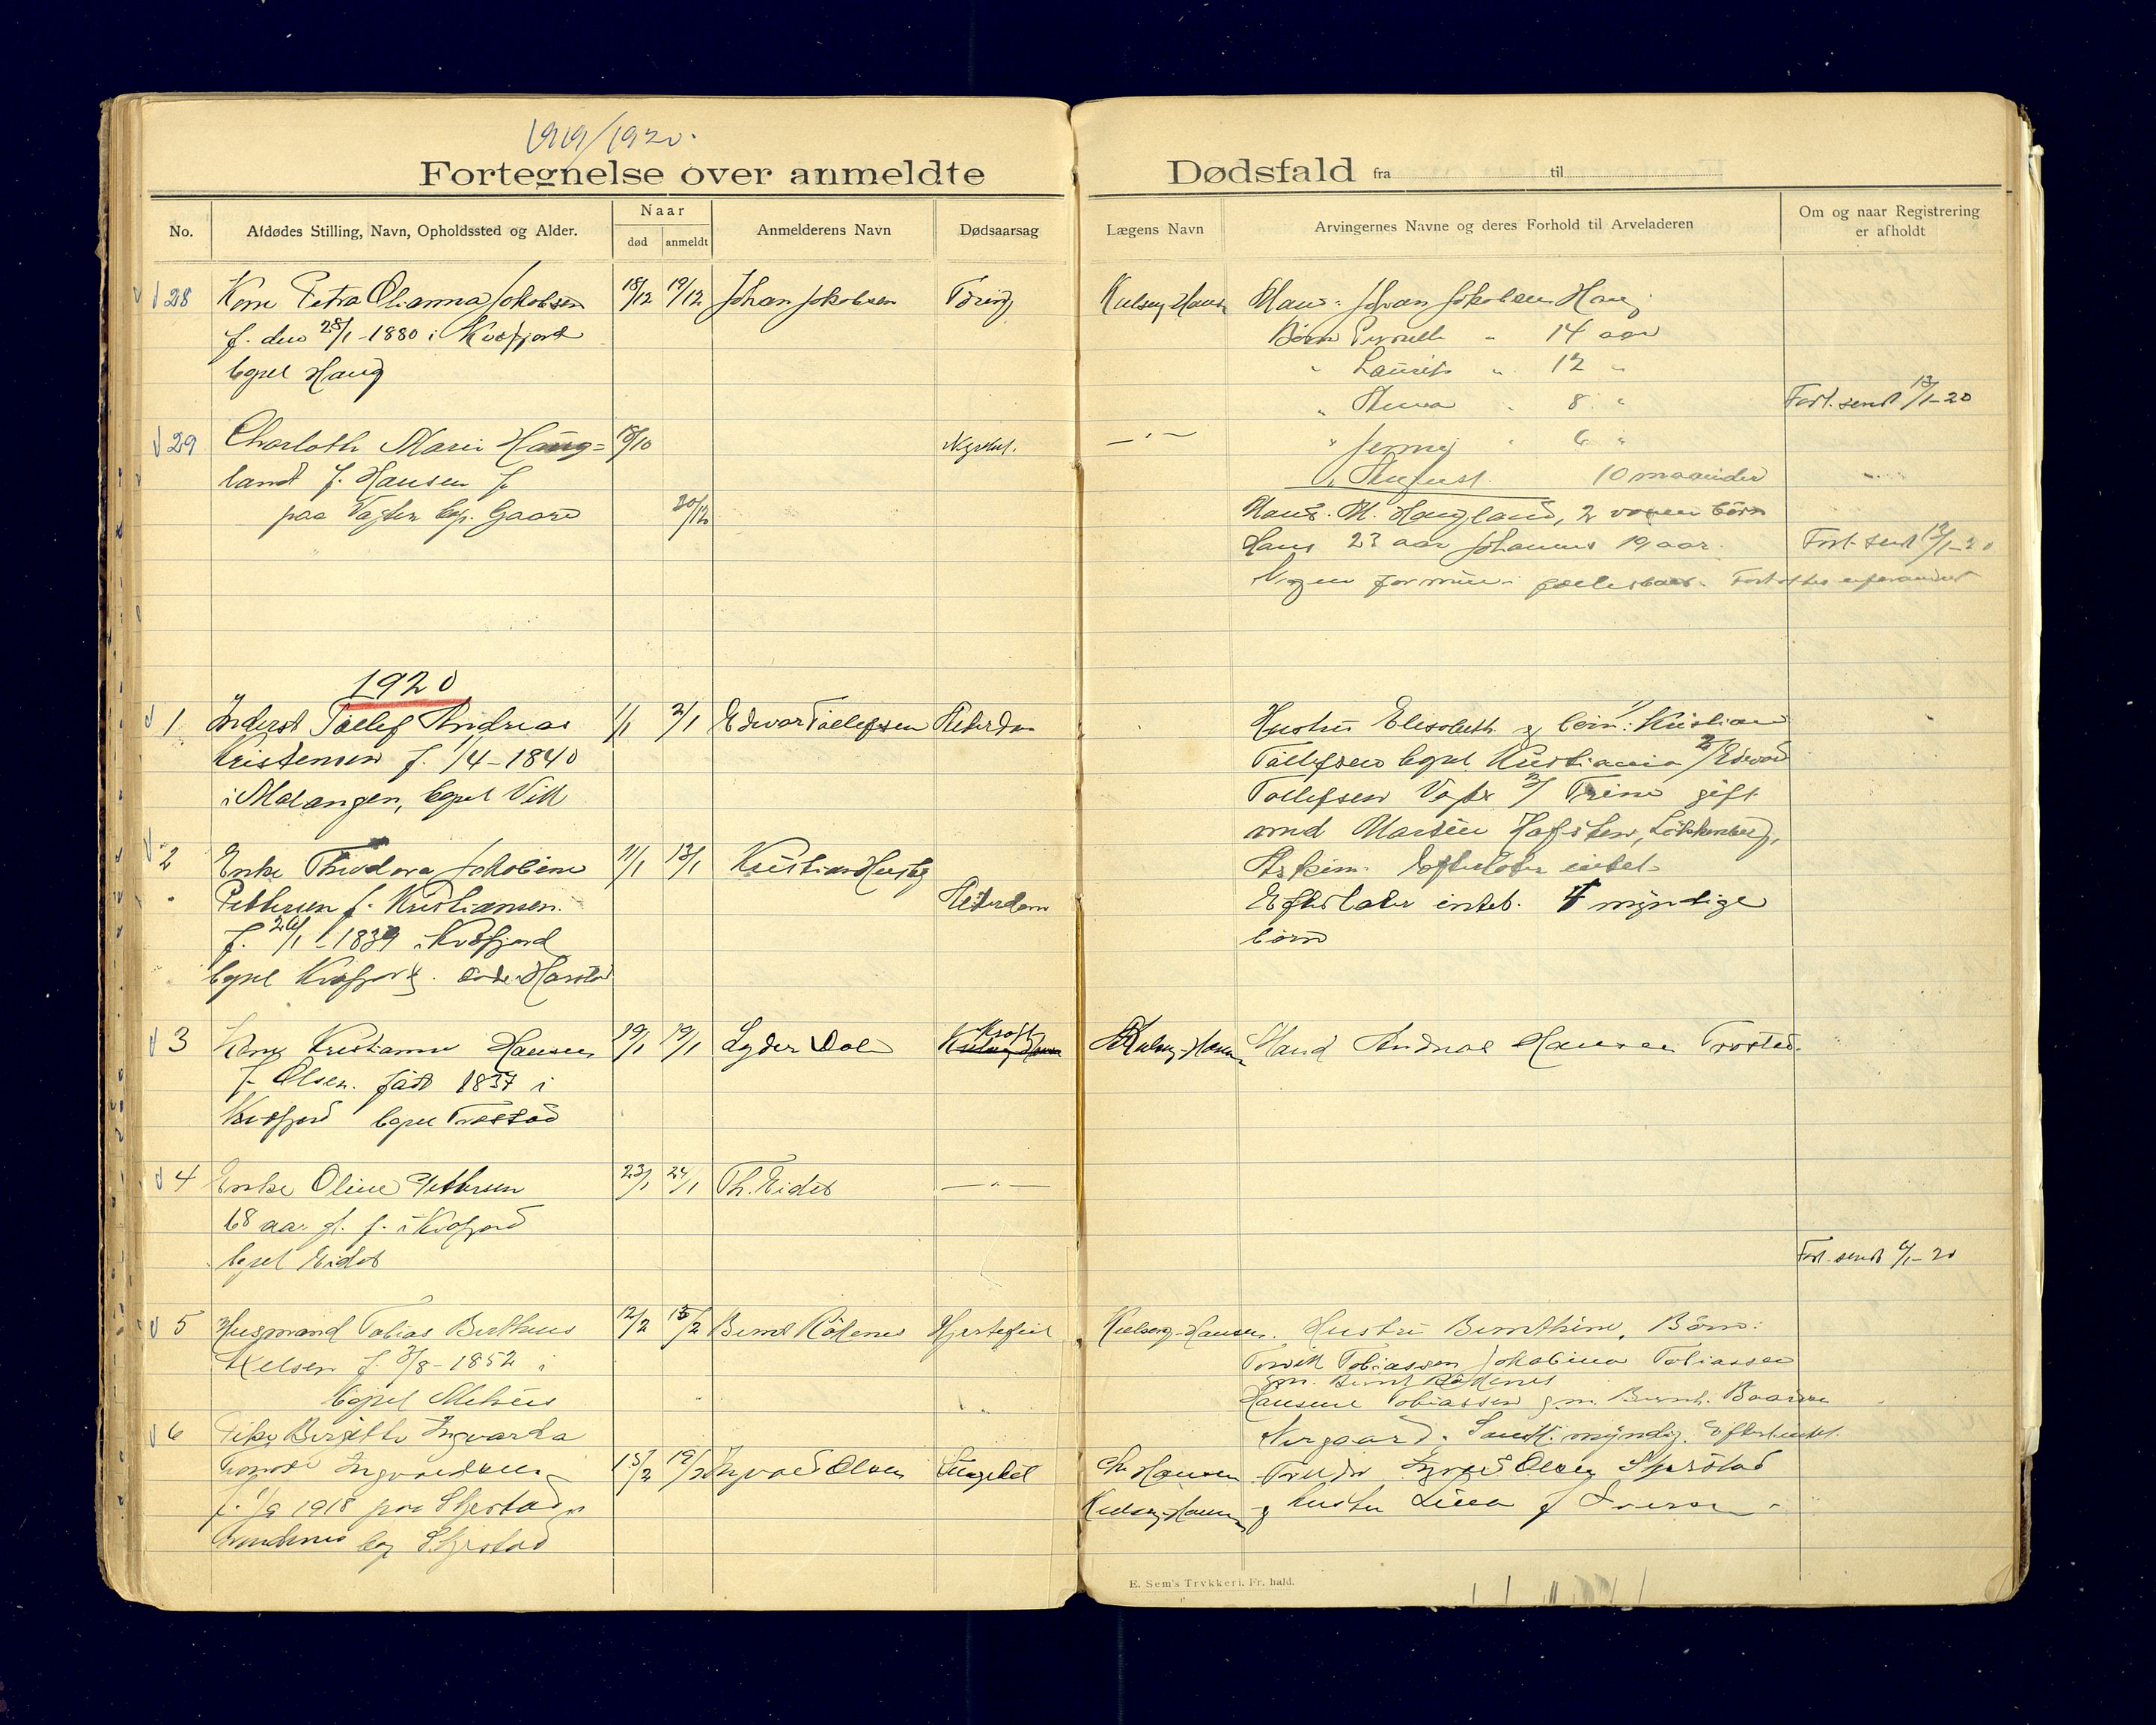 1919/1920.
Fortegnelse over anmeldte Dødsfald fra til
No.
Afdødes Stilling, Navn, Opholdssted og Alder.
Naar
død
anmeldt
Anmelderens Navn
Dødsaarsag
Lægens Navn
Arvingernes Navne og deres Forhold til Arveladeren
Om og naar Registrering
er afholdt
28 Kone Petra Olianna Jakobsen 18/12 19/12 Johan Jakobsen Tæring Kielseng-Hansen Mand: Johan Jakobsen Haug.
f. den 28/1-1880 i Kvæfjord Børn Pernelle " 14 aar
bopel Haug " Laurits " 12 "
" Anna " 8 " Fort. sendt 13/1-20
29 Charlothe Marie Haug= 18/10 — " — " Jenny " 6 "
land f. Hansen f. " August. 10 maaneder
paa Vagten bop. Gaare 30/12 Mand. M. Haugland, 2 voxne børn
Hans 23 aar Johannes 19 aar. Fort. sendt 13/1-20
Ingen formue i fællesboet.
1920
1 Inderst Tollef Andreas 1/1 2/1 Edvar Tollefsen Alderdom Hustru Elisabeth og børn: 1/ Kristian
Kristensen f. 1/4-1840 Tollefsen bopel Kristiania 2/ Edvard
i Malangen, bopel Vik Tollefsen Vagten 3/ Trine gift
med Martin
Askim. Efterlater intet.
2 Enke Theodora Jakobine 11/1 13/1 Kristian
Pettersen f. Kristiansen. Alderdom Efterlater intet. 4 myndige
f. 26/1-1839 i Kvæfjord børn
bopel Kvæfjord
3 Kone Kristianne Hansen 19/1 19/1 Lyder Dal Kræft Kielseng-Hansen Mand Andreas Hansen Trastad.
f. Olsen. født 1837 i
Kvæfjord bopel Trastad
4 Enke Oline Pettersen 23/1 24/1 Th. Eidet — " —
68 aar gl. f. i Kvæfjord
bopel Eidet Fort. sendt 6/1-20
5 Husmand Tobias Bertheus 12/2 13/2 Bernt Rødenes Hjertefeil Kielseng-Hansen. Hustru Bernthine. Børn:
f. 3/8-1852 i Torvik Tobiassen Jakobine Tobiassen
gm. Bernt Rødenes
bopel Melhus Hansine Tobiassen g.m. Bernh.
6 Pike Birgitte Ingvarda Nergaard. Samtl. myndig.
Ingvaldsen 15/2 19/2 Ingvald Olsen Chr Hansen Ingvald Olsen Skjerstad
f. 1/9 1918 paa Skjerstad Kielseng-Hansen og Hustru Lina f
Trondenes bop Skjerstad
E. Sem's Trykkeri, Fr. hald.